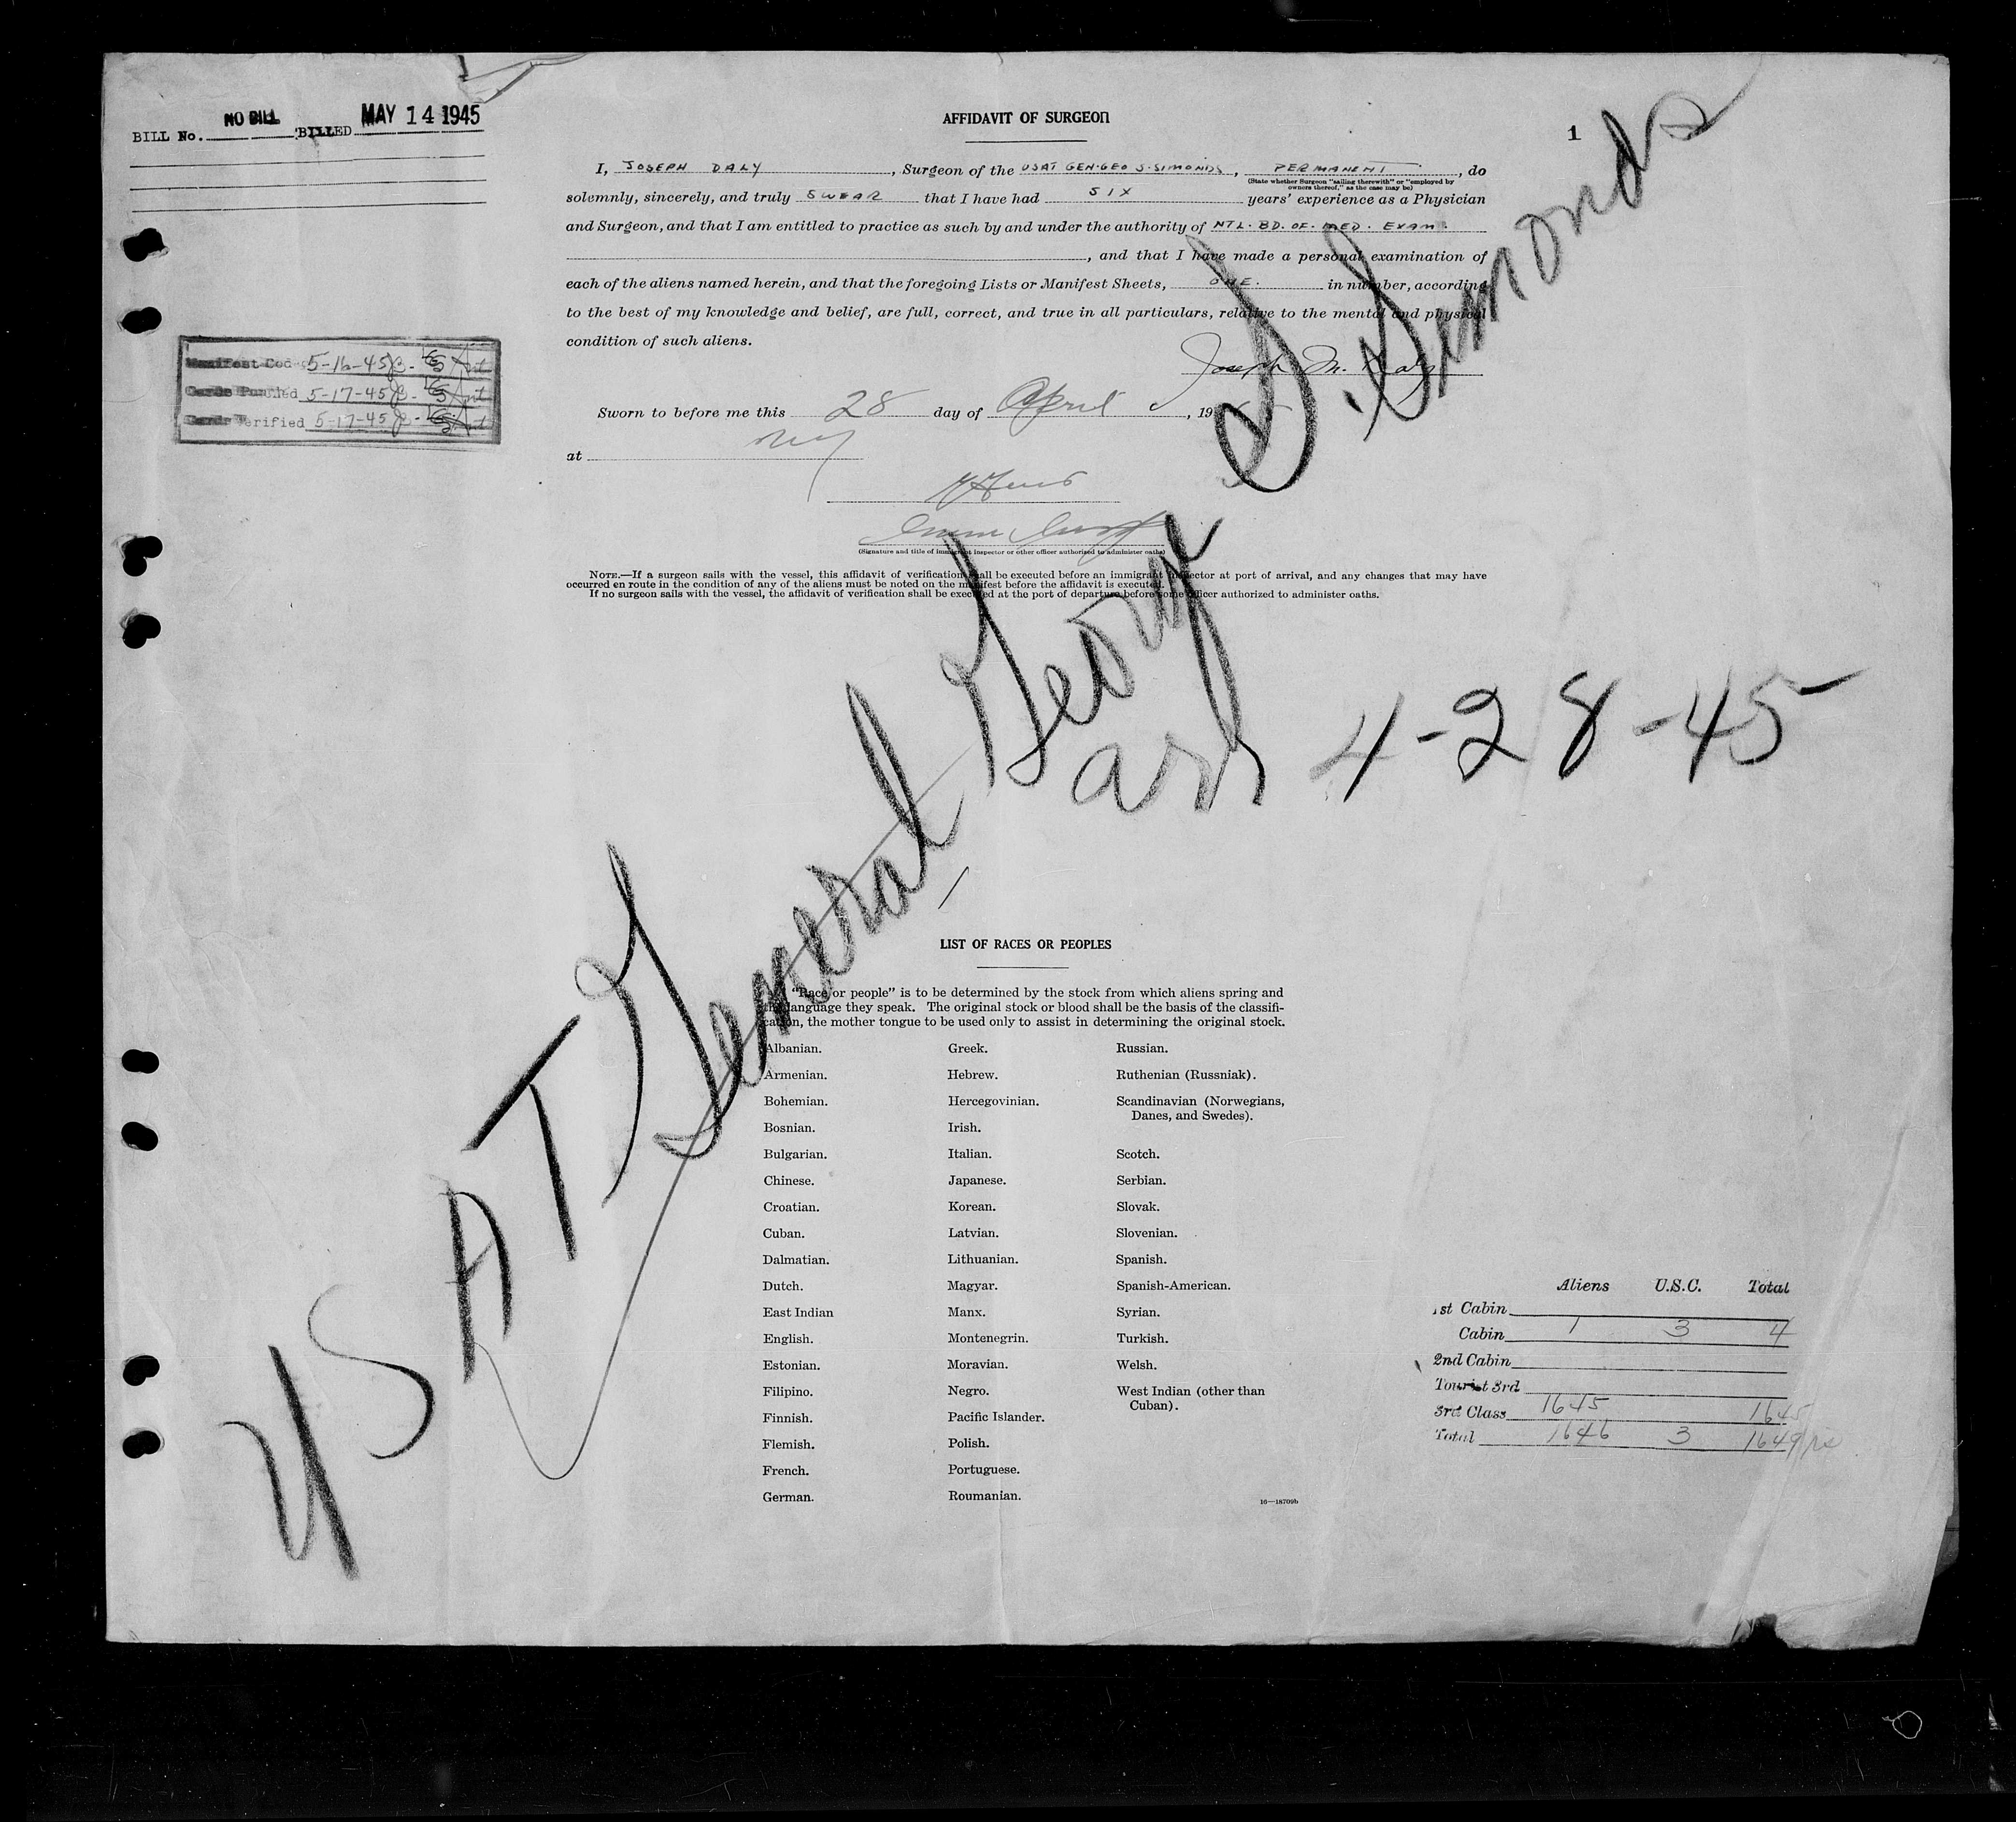 BILL No. NO BILL BILLED MAY 14 1945
AFFIDAVIT OF SURGEON
1
I, JOSEPH DALY, Surgeon of the USAT GEN·GEO S·SIMONDS, PERMANENT, do
(State whether Surgeon "sailing therewith" or "employed by
owners thereof," as the case may be)
solemnly, sincerely, and truly SWEAR that I have had SIX years' experience as a Physician
and Surgeon, and that I am entitled to practice as such by and under the authority of NTL. BD. OF. MED. EXAM.
, and that I have made a personal examination of
each of the aliens named herein, and that the foregoing Lists or Manifest Sheets, ONE. in number, according
to the best of my knowledge and belief, are full, correct, and true in all particulars, relative to the mental and physical
condition of such aliens.
Joseph M. Daly
Manifest Cod 5-16-45
Cards Punched 5-17-45
Cards Verified 5-17-45
Sworn to before me this 28 day of April, 19
at NY
(Signature and title of immigrant inspector or other officer authorized to administer oaths)
NOTE.—If a surgeon sails with the vessel, this affidavit of verification shall be executed before an immigrant inspector at port of arrival, and any changes that may have
occurred en route in the condition of any of the aliens must be noted on the manifest before the affidavit is executed.
If no surgeon sails with the vessel, the affidavit of verification shall be executed at the port of departure before some officer authorized to administer oaths.
USAT General George S. Simonds
arr 4-28-45
LIST OF RACES OR PEOPLES
"Race or people" is to be determined by the stock from which aliens spring and
the language they speak. The original stock or blood shall be the basis of the classifi-
cation, the mother tongue to be used only to assist in determining the original stock.
Albanian. Greek. Russian.
Armenian. Hebrew. Ruthenian (Russniak).
Bohemian. Hercegovinian. Scandinavian (Norwegians,
Danes, and Swedes).
Bosnian. Irish.
Bulgarian. Italian. Scotch.
Chinese. Japanese. Serbian.
Croatian. Korean. Slovak.
Cuban. Latvian. Slovenian.
Dalmatian. Lithuanian. Spanish.
Dutch. Magyar. Spanish-American.
East Indian Manx. Syrian.
English. Montenegrin. Turkish.
Estonian. Moravian. Welsh.
Filipino. Negro. West Indian (other than
Cuban).
Finnish. Pacific Islander.
Flemish. Polish.
French. Portuguese.
German. Roumanian.
16—18709b
Aliens U.S.C. Total
1st Cabin
Cabin 1 3 4
2nd Cabin
Tourist 3rd
3rd Class 1645 1645
Total 1646 3 1649